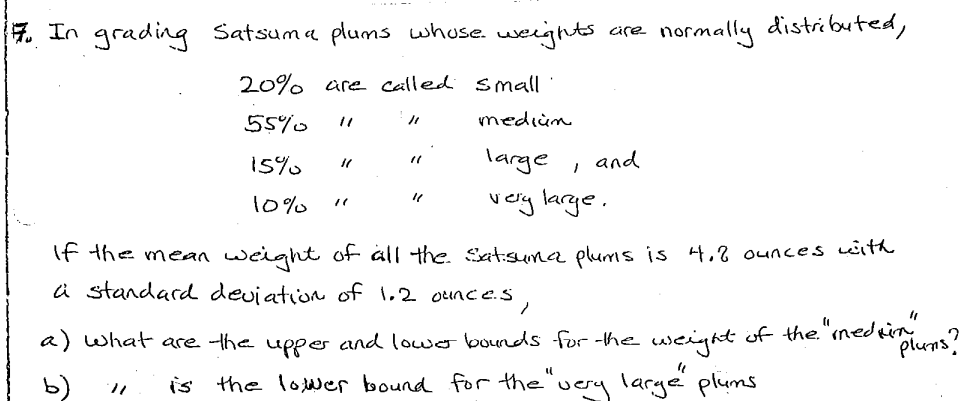 7. In grading Satsuma plums whose weights are normally distributed,
20% are called small
55% " " medium
15% " " large, and
10% " " very large.
If the mean weight of all the Satsuma plums is 4.8 ounces with
a standard deviation of 1.2 ounces,
a) what are the upper and lower bounds for the weight of the "medium" plums?
b) " is the lower bound for the "very large" plums